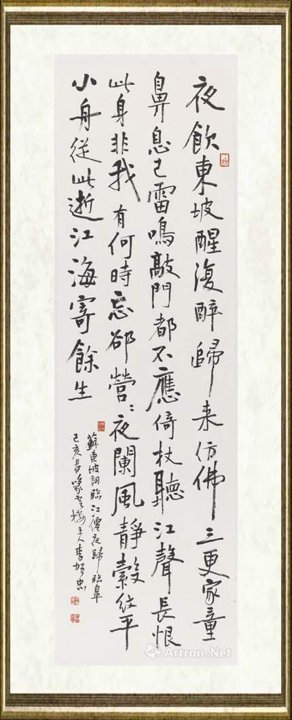 夜飲東坡醒復醉歸来仿佛三更家童
鼻息已雷鳴敲門都不應倚杖聽江聲長恨
此身非我有何時忘卻營〻夜闌風靜縠紋平
小舟從此逝江海寄餘生
蘇東坡詞臨江僊夜歸臨皋
己亥春
Artron.Net